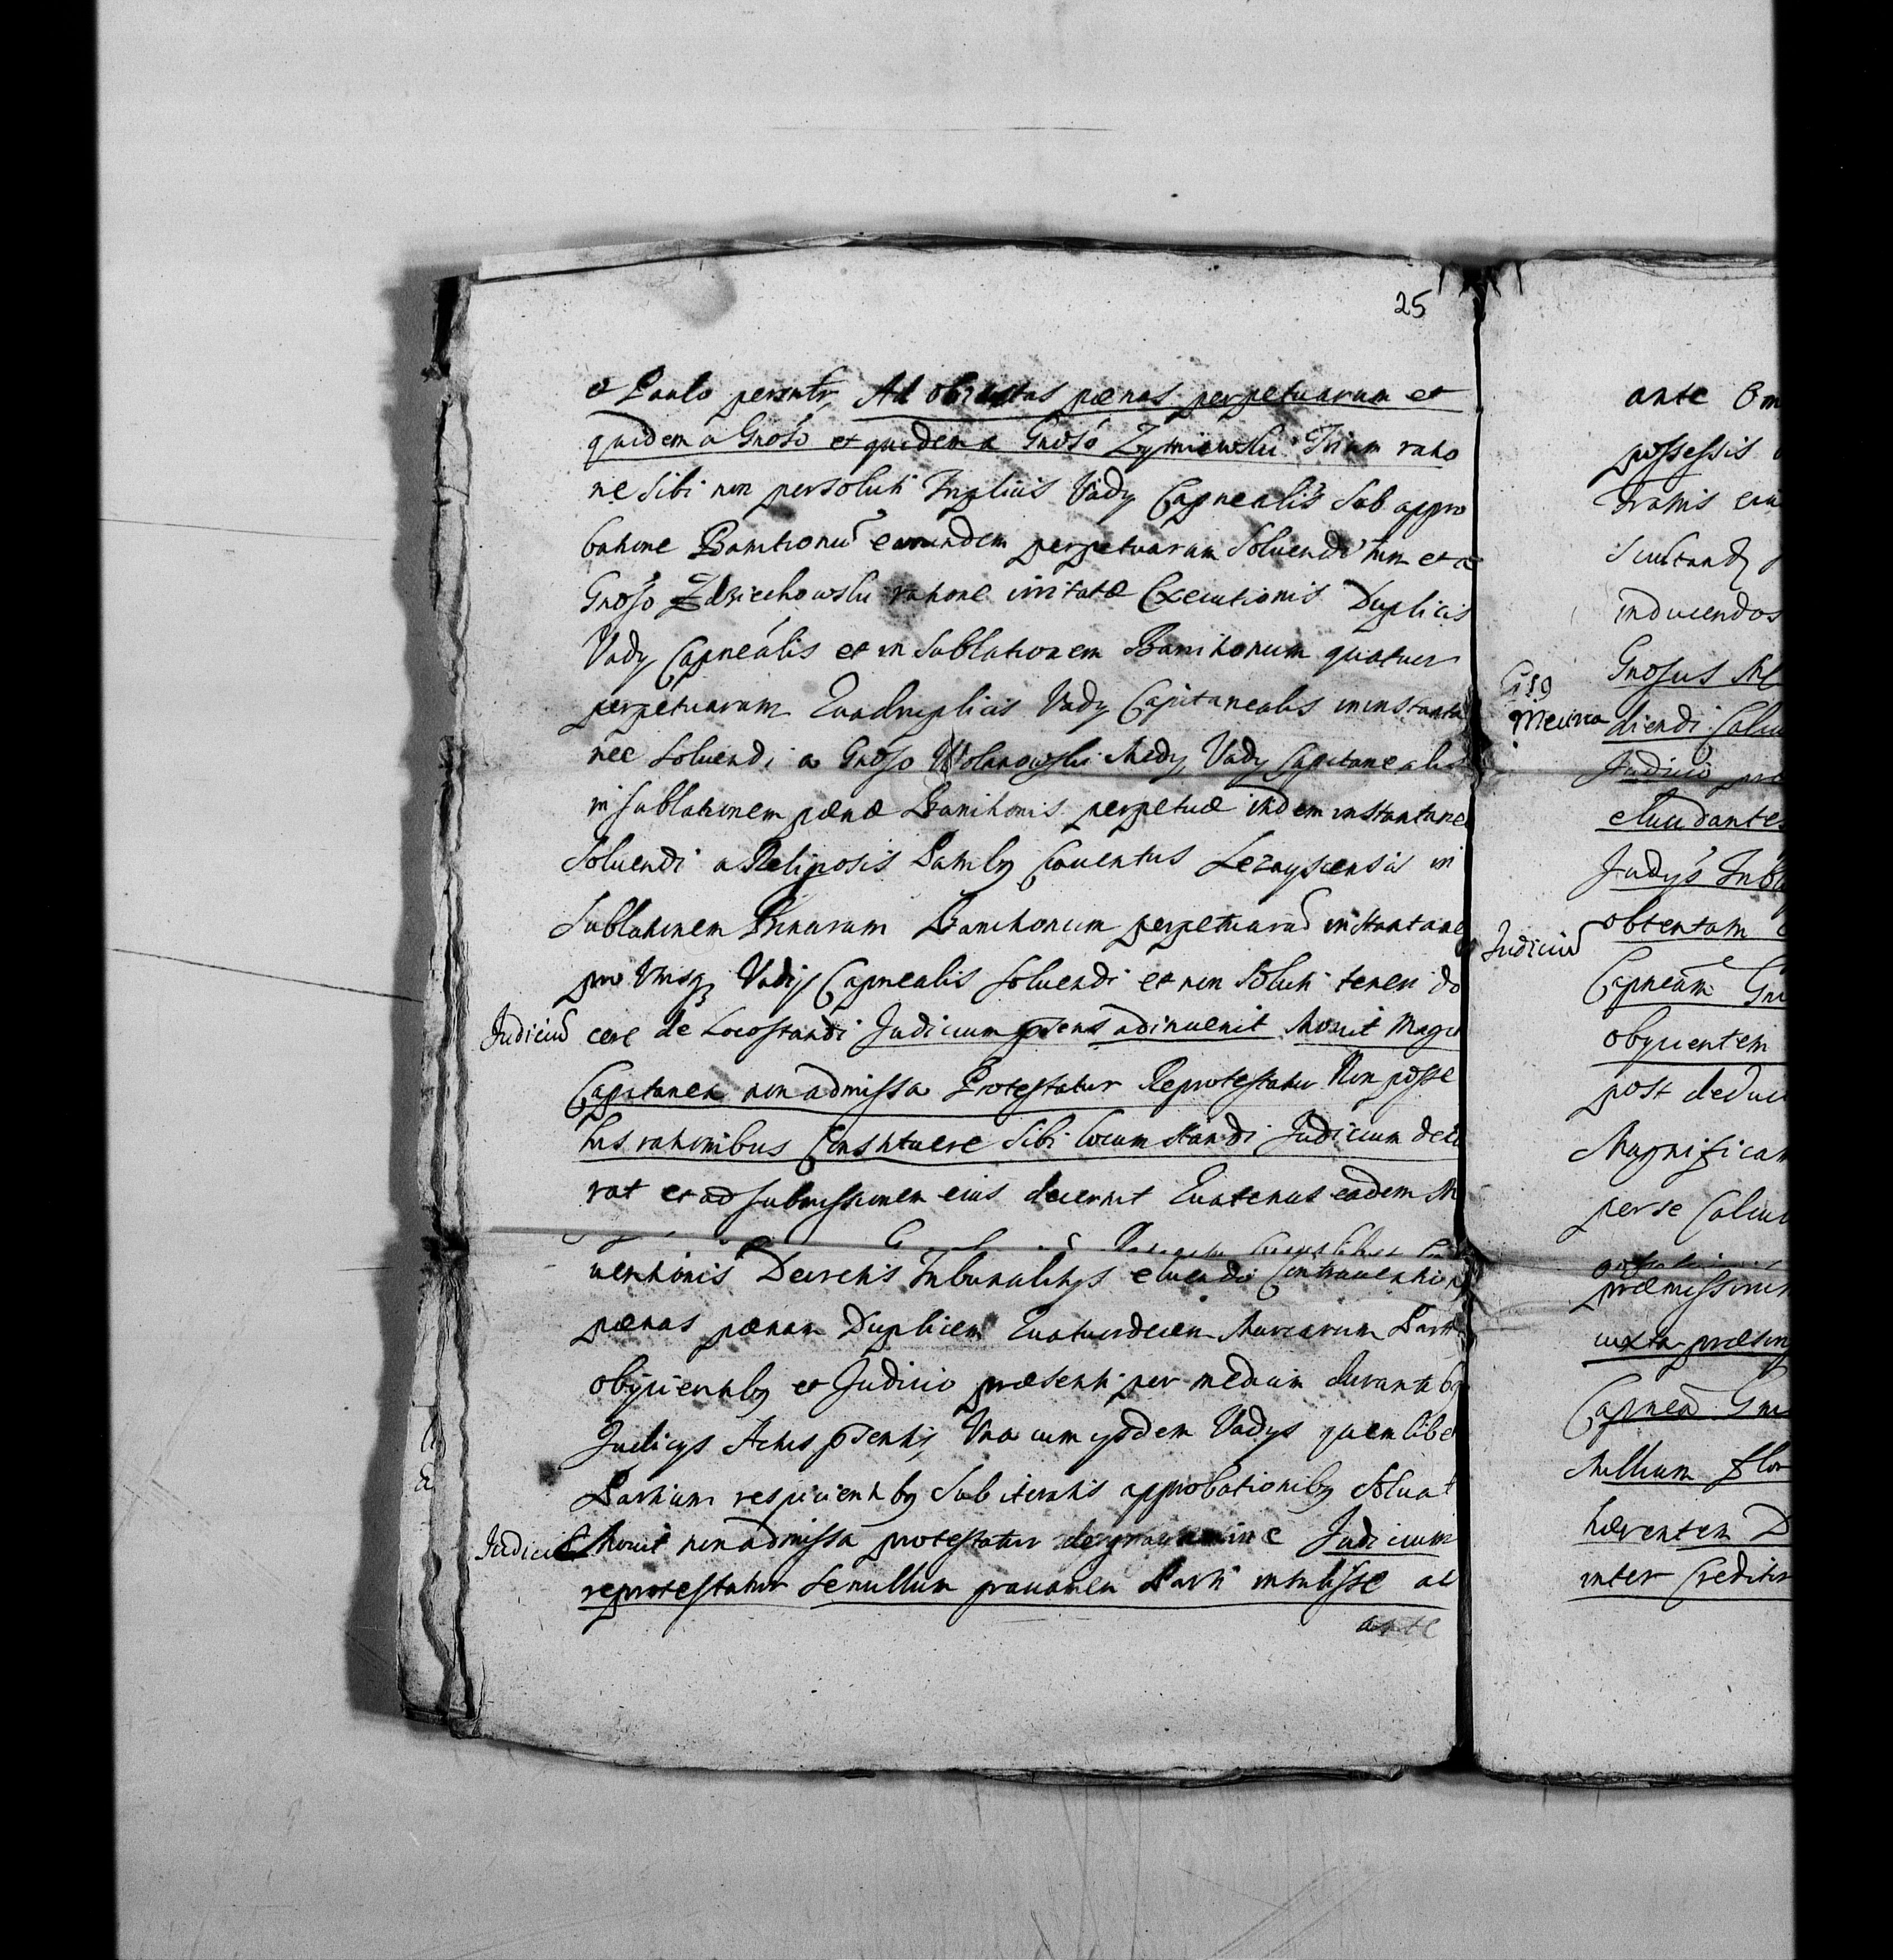 25
et Paulo personter, Ad obiectas pænas perpetuarum et
quidem a Gnoso et quidem a Gnoso Zymiowski Trium ratio
ne sibi non persoluti Triplicis Vady Capnealis sub appro
batione Banitionu earundem perpetuarum Soluendi tum et a
Gnoso Zdziechowski ratione irritatæ Executionis Duplicis
Vady Capnealis et in Sublationem Banitionum quatuor
perpetuarum Quadruplicis Vady Capitanealis ininstanta
nee Soluendi a Gnoso Wolanowski Medy Vady Capitanealis
in sublationem pænæ Banitionis perpetuæ itidem instantanee
Soluendi a Religiosis Patribq Conuentus Lezayscensis in
Sublationem Binarum Banitionum perpetuaru instantanee
pro Vtrisq Vadijs Capnealis soluendi et non Soluti teneri do
Judiciu cere de Locostandi Judicium præsens adinuenit Mouit Magca
Capitanea non admissa Protestatur Reprotestatur Non posse
his rationibus Constituere Sibi locum standi Judicium decla
rat et ad submissionem eius decernit Quatenus eadem M
uentionis Decretis Tribunalitijs eluendo Contrauentionis
pænas pænam Duplicem Quatuordecem Marcarum Parti
obijcientibq et Judicio præsenti per medium durantibq
Judicijs Actis præsentis Vna cum ijsdem Vadys quemlibet
Partium respicientibq Sub iteratis approbationibq soluat
Judiciu Mouit non admissa protestatur de grauamine Judicium
reprotestatur se nullum grauamen Parti intulisse ac
ante
ante Om
possessis
inducendos
Gnosus
Mecina diendi Calcu
Judicio pro
elucidantes
Judiciu obtentam
Capneam Gn
obijcientem
post deduc
Magnifican
per se Calcu
præmissorum
iuxta præsen
Capnea Gn
Millium flor
hærentem D
inter Creditor